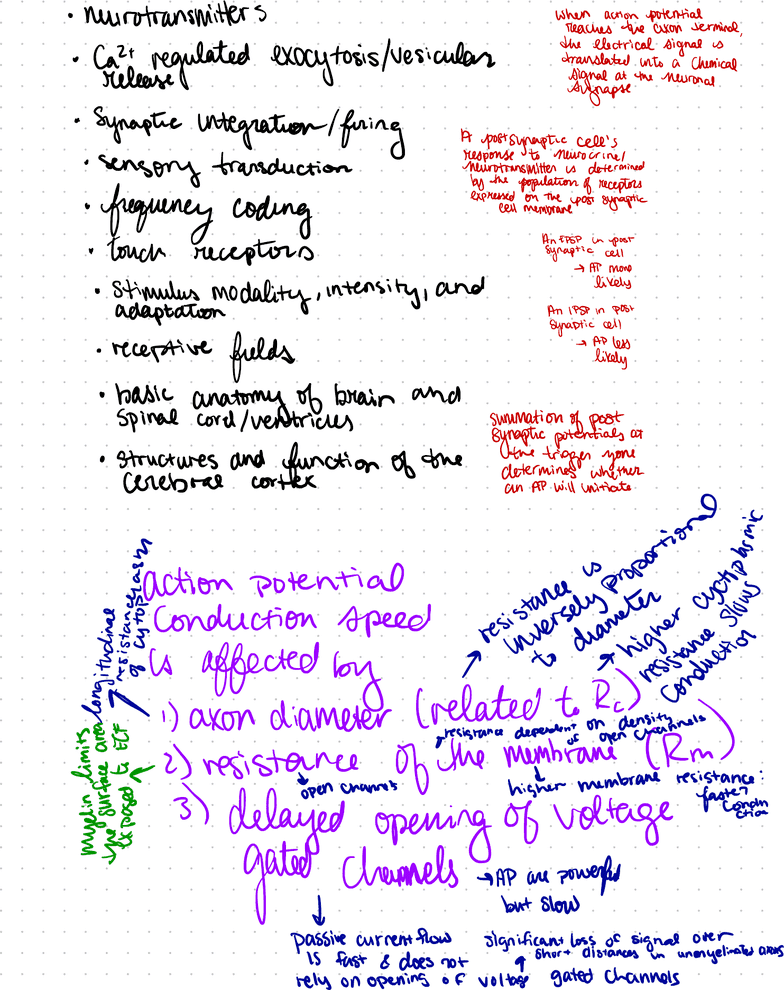 • neurotransmitters
• Ca²⁺ regulated exocytosis/vesicular
release
• Synaptic integration/firing
• sensory transduction
• frequency coding
• touch receptors
• Stimulus modality, intensity, and
adaptation
• receptive fields
• basic anatomy of brain and
spinal cord/ventricles
• structures and function of the
cerebral cortex
when action potential
reaches the axon terminal,
the electrical signal is
translated into a chemical
signal at the neuronal
synapse
A postsynaptic cell's
response to neurocrine/
neurotransmitter is determined
by the population of receptors
expressed on the post synaptic
cell membrane
An EPSP in post
synaptic cell
→ AP more
likely
An IPSP in post
synaptic cell
→ AP less
likely
summation of post
synaptic potentials at
the trigger zone
determines whether
an AP will initiate
action potential
Conduction speed
is affected by
1) axon diameter (related to Rc)
2) resistance of the membrane (Rm)
3) delayed opening of voltage
gated channels
longitudinal
resistance
of cytoplasm
resistance is
inversely proportional
to diameter
higher cytoplasmic
resistance slows
conduction
resistance dependent on density
of open channels
open channels
higher membrane resistance:
faster
conduction
myelin limits
the surface area
exposed to ECF
→ AP are powerful
but slow
passive current flow
is fast & does not
rely on opening of voltage gated channels
significant loss of signal over
short distances in unmyelinated axons